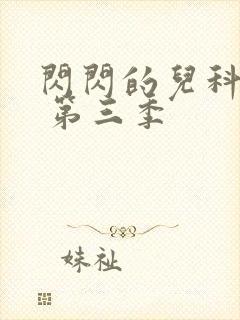 閃閃的兒科
第三季
妹祉